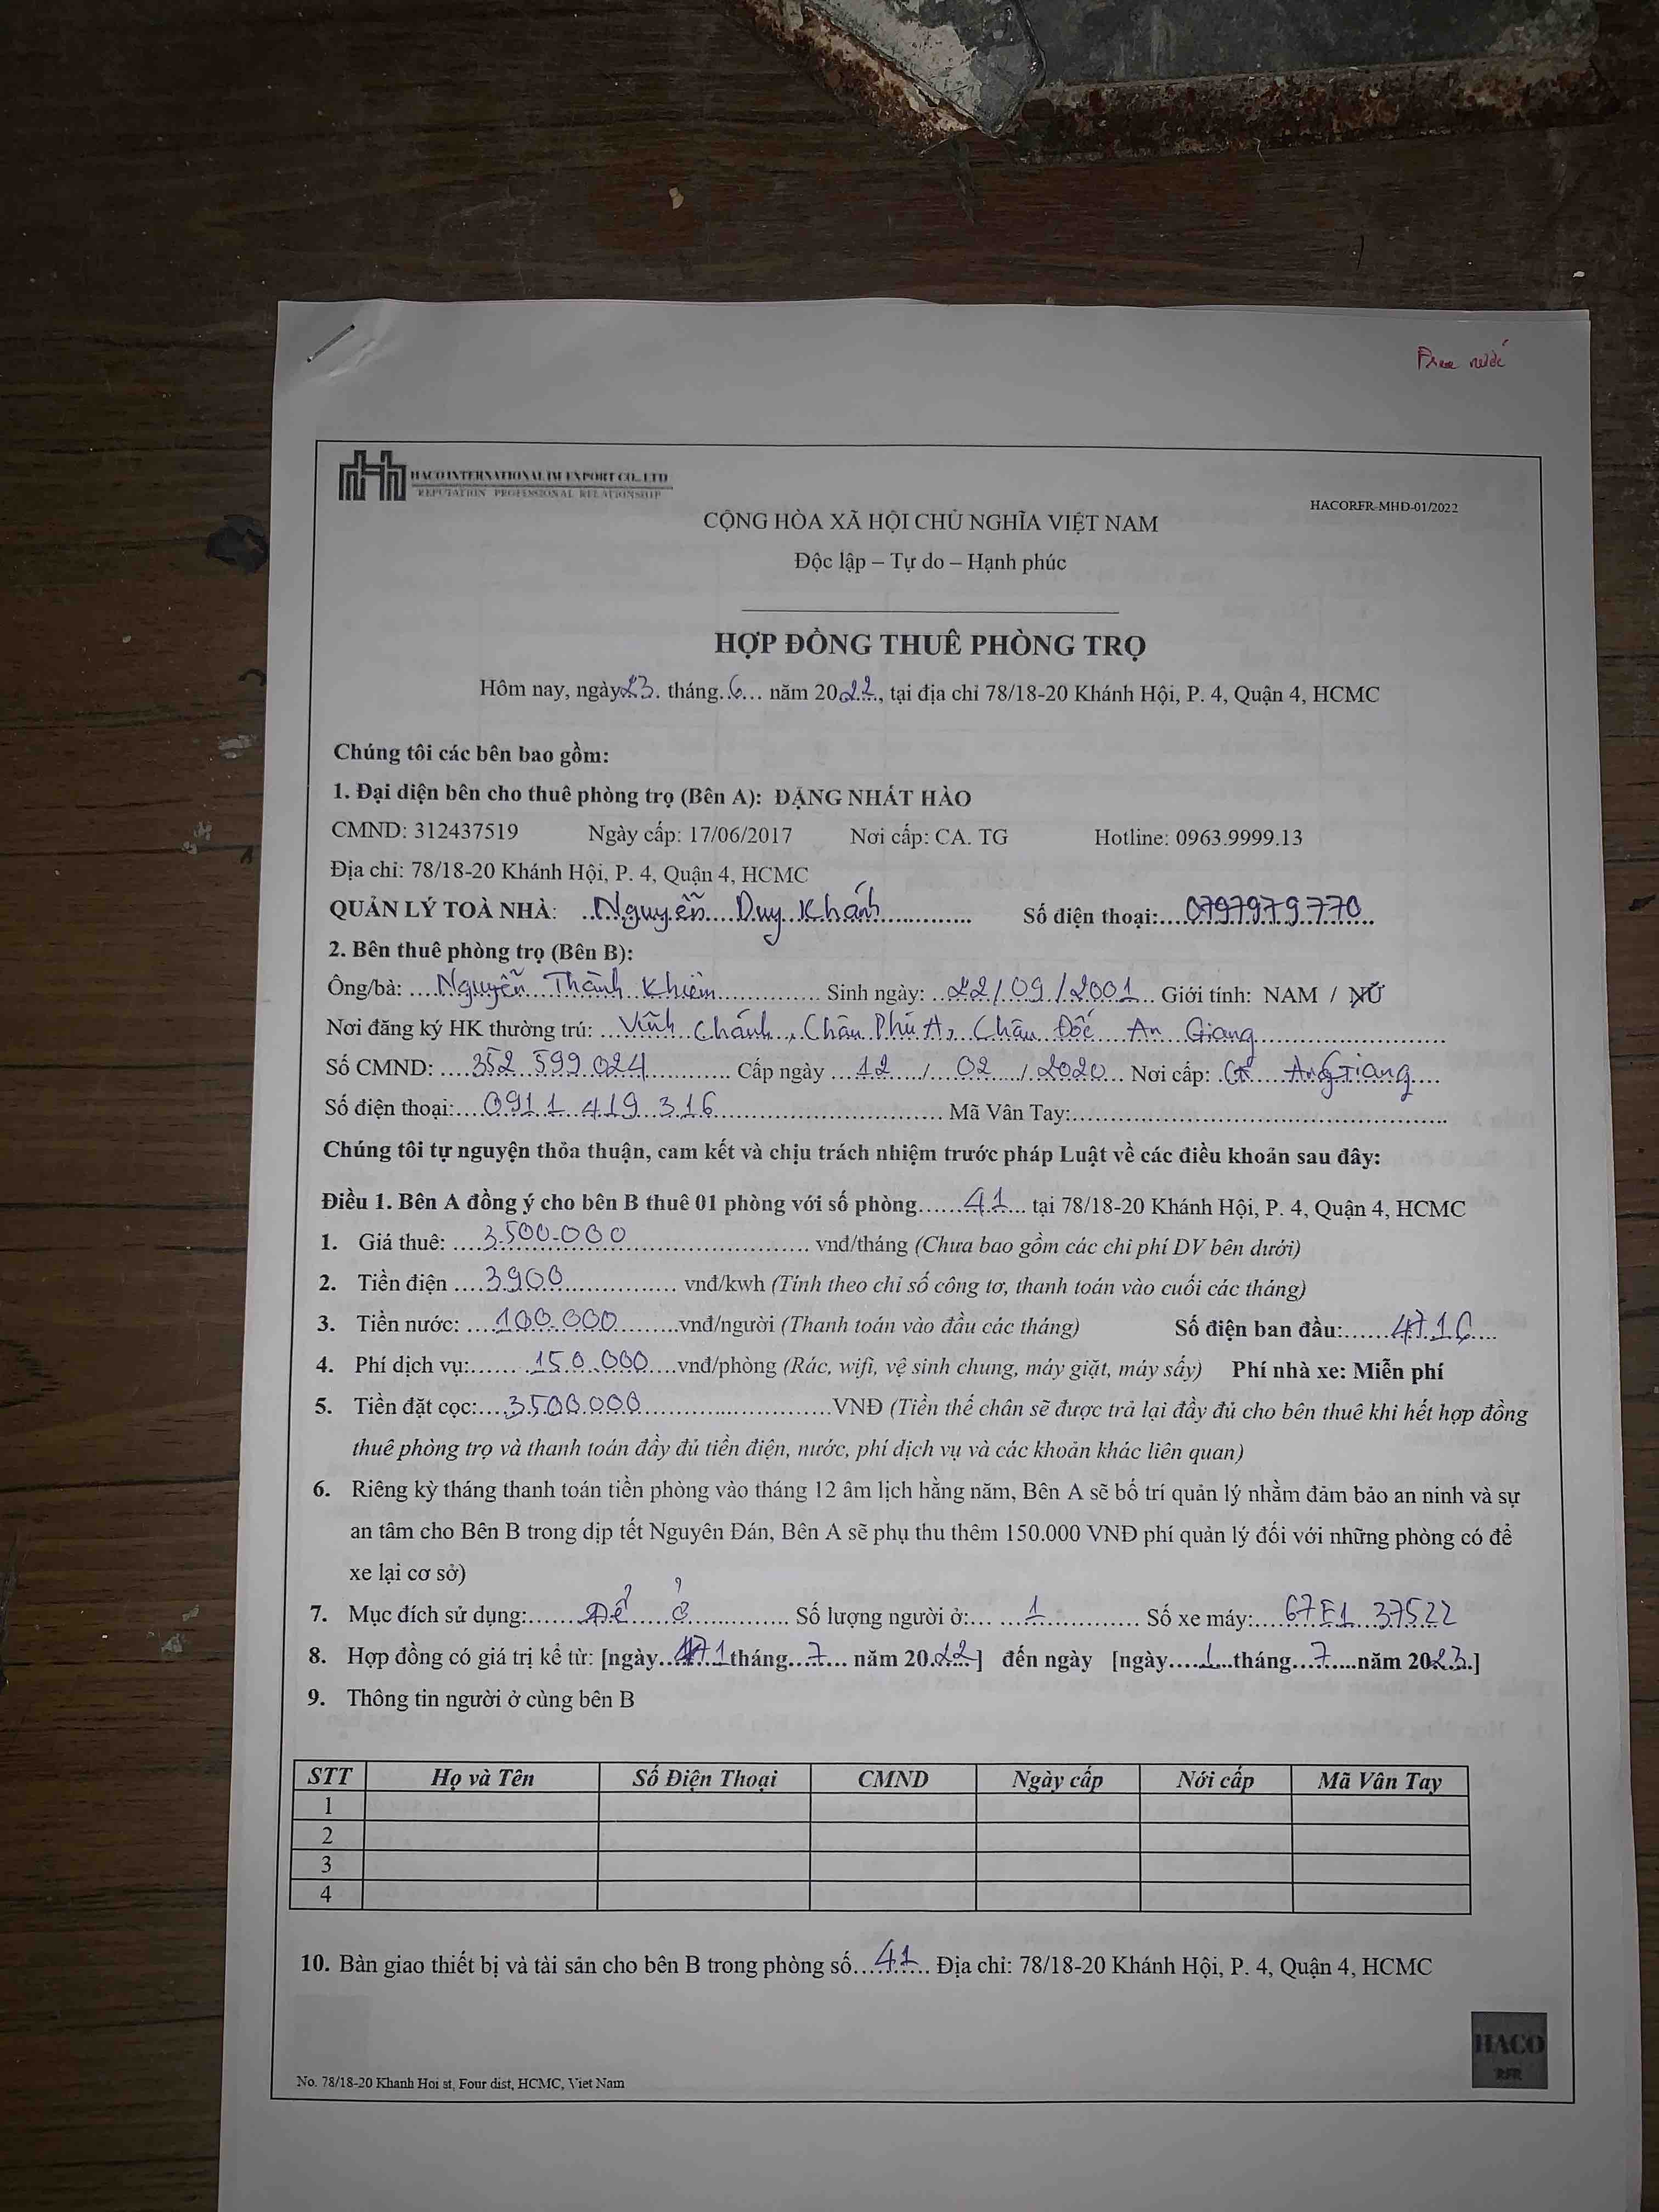 Free nước
HACO INTERNATIONAL IM EXPORT CO., LTD
REPUTATION PROFESSIONAL RELATIONSHIP
HACORFR-MHD-01/2022
CỘNG HÒA XÃ HỘI CHỦ NGHĨA VIỆT NAM
Độc lập – Tự do – Hạnh phúc
HỢP ĐỒNG THUÊ PHÒNG TRỌ
Hôm nay, ngày 23. tháng..6... năm 2022, tại địa chỉ 78/18-20 Khánh Hội, P. 4, Quận 4, HCMC
Chúng tôi các bên bao gồm:
1. Đại diện bên cho thuê phòng trọ (Bên A): ĐẶNG NHẤT HÀO
CMND: 312437519 Ngày cấp: 17/06/2017 Nơi cấp: CA. TG Hotline: 0963.9999.13
Địa chỉ: 78/18-20 Khánh Hội, P. 4, Quận 4, HCMC
QUẢN LÝ TOÀ NHÀ: Nguyễn Duy Khánh Số điện thoại: 0797979770
2. Bên thuê phòng trọ (Bên B):
Ông/bà: Nguyễn Thành Khiêm Sinh ngày: 22/09/2001 Giới tính: NAM / NỮ
Nơi đăng ký HK thường trú: Vĩnh Chánh, Châu Phú A, Châu Đốc An Giang
Số CMND: 352 599 024 Cấp ngày 12 / 02 / 2020 Nơi cấp: An Giang
Số điện thoại: 0911 419 316 Mã Vân Tay:
Chúng tôi tự nguyện thỏa thuận, cam kết và chịu trách nhiệm trước pháp Luật về các điều khoản sau đây:
Điều 1. Bên A đồng ý cho bên B thuê 01 phòng với số phòng 41 tại 78/18-20 Khánh Hội, P. 4, Quận 4, HCMC
1. Giá thuê: 3.500.000 vnđ/tháng (Chưa bao gồm các chi phí DV bên dưới)
2. Tiền điện 3900 vnđ/kwh (Tính theo chỉ số công tơ, thanh toán vào cuối các tháng)
3. Tiền nước: 100.000 vnđ/người (Thanh toán vào đầu các tháng) Số điện ban đầu: 4716
4. Phí dịch vụ: 150.000 vnđ/phòng (Rác, wifi, vệ sinh chung, máy giặt, máy sấy) Phí nhà xe: Miễn phí
5. Tiền đặt cọc: 3500.000 VNĐ (Tiền thế chân sẽ được trả lại đầy đủ cho bên thuê khi hết hợp đồng
thuê phòng trọ và thanh toán đầy đủ tiền điện, nước, phí dịch vụ và các khoản khác liên quan)
6. Riêng kỳ tháng thanh toán tiền phòng vào tháng 12 âm lịch hằng năm, Bên A sẽ bố trí quản lý nhằm đảm bảo an ninh và sự
an tâm cho Bên B trong dịp tết Nguyên Đán, Bên A sẽ phụ thu thêm 150.000 VNĐ phí quản lý đối với những phòng có để
xe lại cơ sở)
7. Mục đích sử dụng: Để ở Số lượng người ở: 1 Số xe máy: 67E1 37522
8. Hợp đồng có giá trị kể từ: [ngày 1 tháng 7 năm 2022] đến ngày [ngày 1 tháng 7 năm 2023.]
9. Thông tin người ở cùng bên B
STT Họ và Tên Số Điện Thoại CMND Ngày cấp Nới cấp Mã Vân Tay
1
2
3
4
10. Bàn giao thiết bị và tài sản cho bên B trong phòng số 41 Địa chỉ: 78/18-20 Khánh Hội, P. 4, Quận 4, HCMC
HACO
RFR
No. 78/18-20 Khanh Hoi st, Four dist, HCMC, Viet Nam